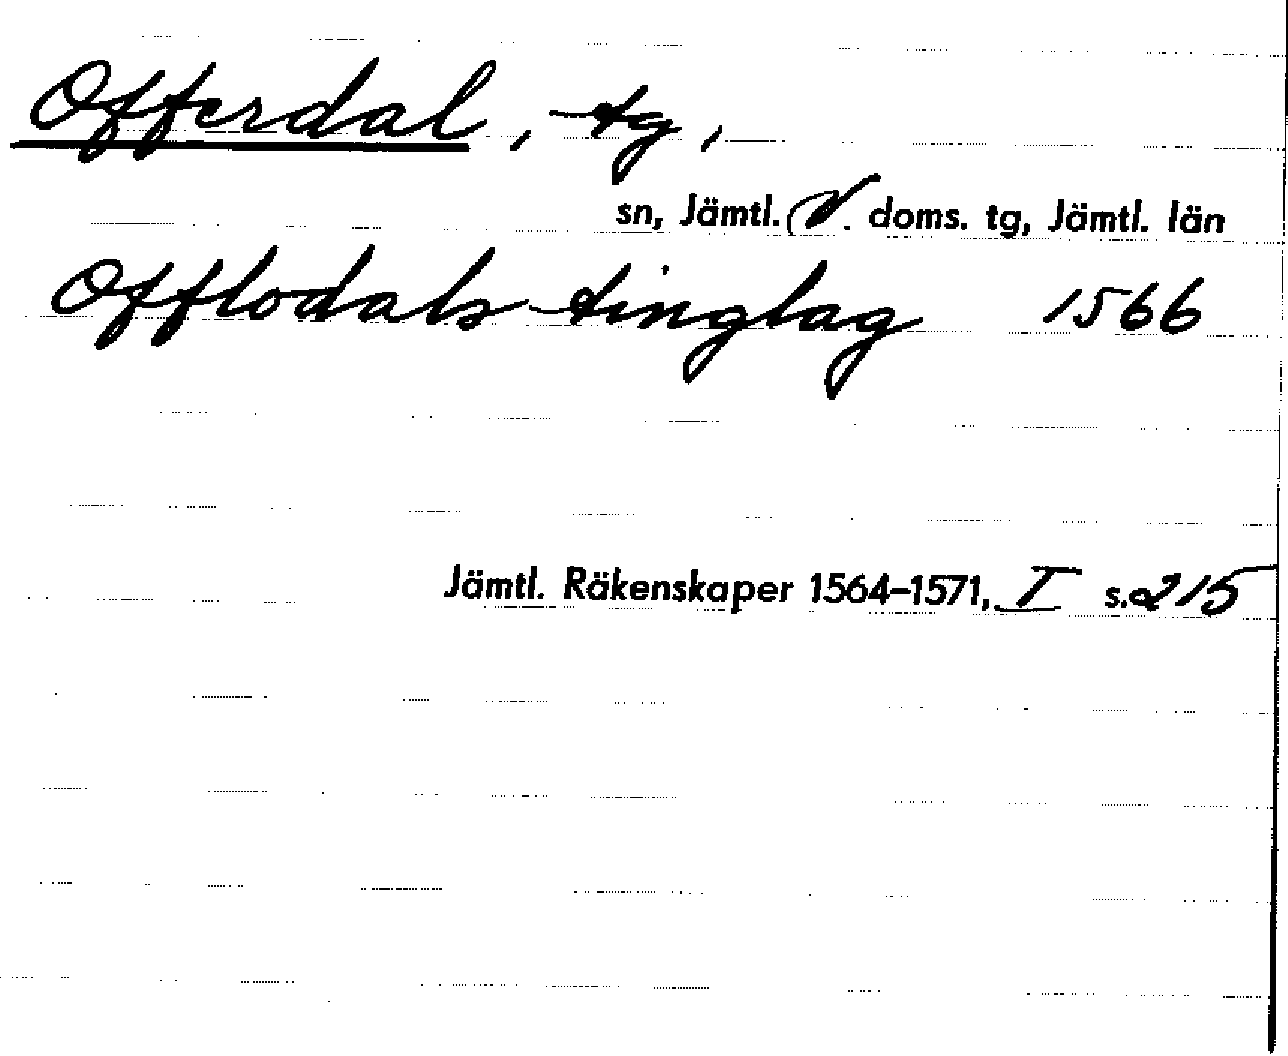 Offerdal, tg,
sn, Jämtl. V. doms. tg, Jämtl. län
Offlodals tinglag 1566
Jämtl. Räkenskaper 1564–1571, I s. 215